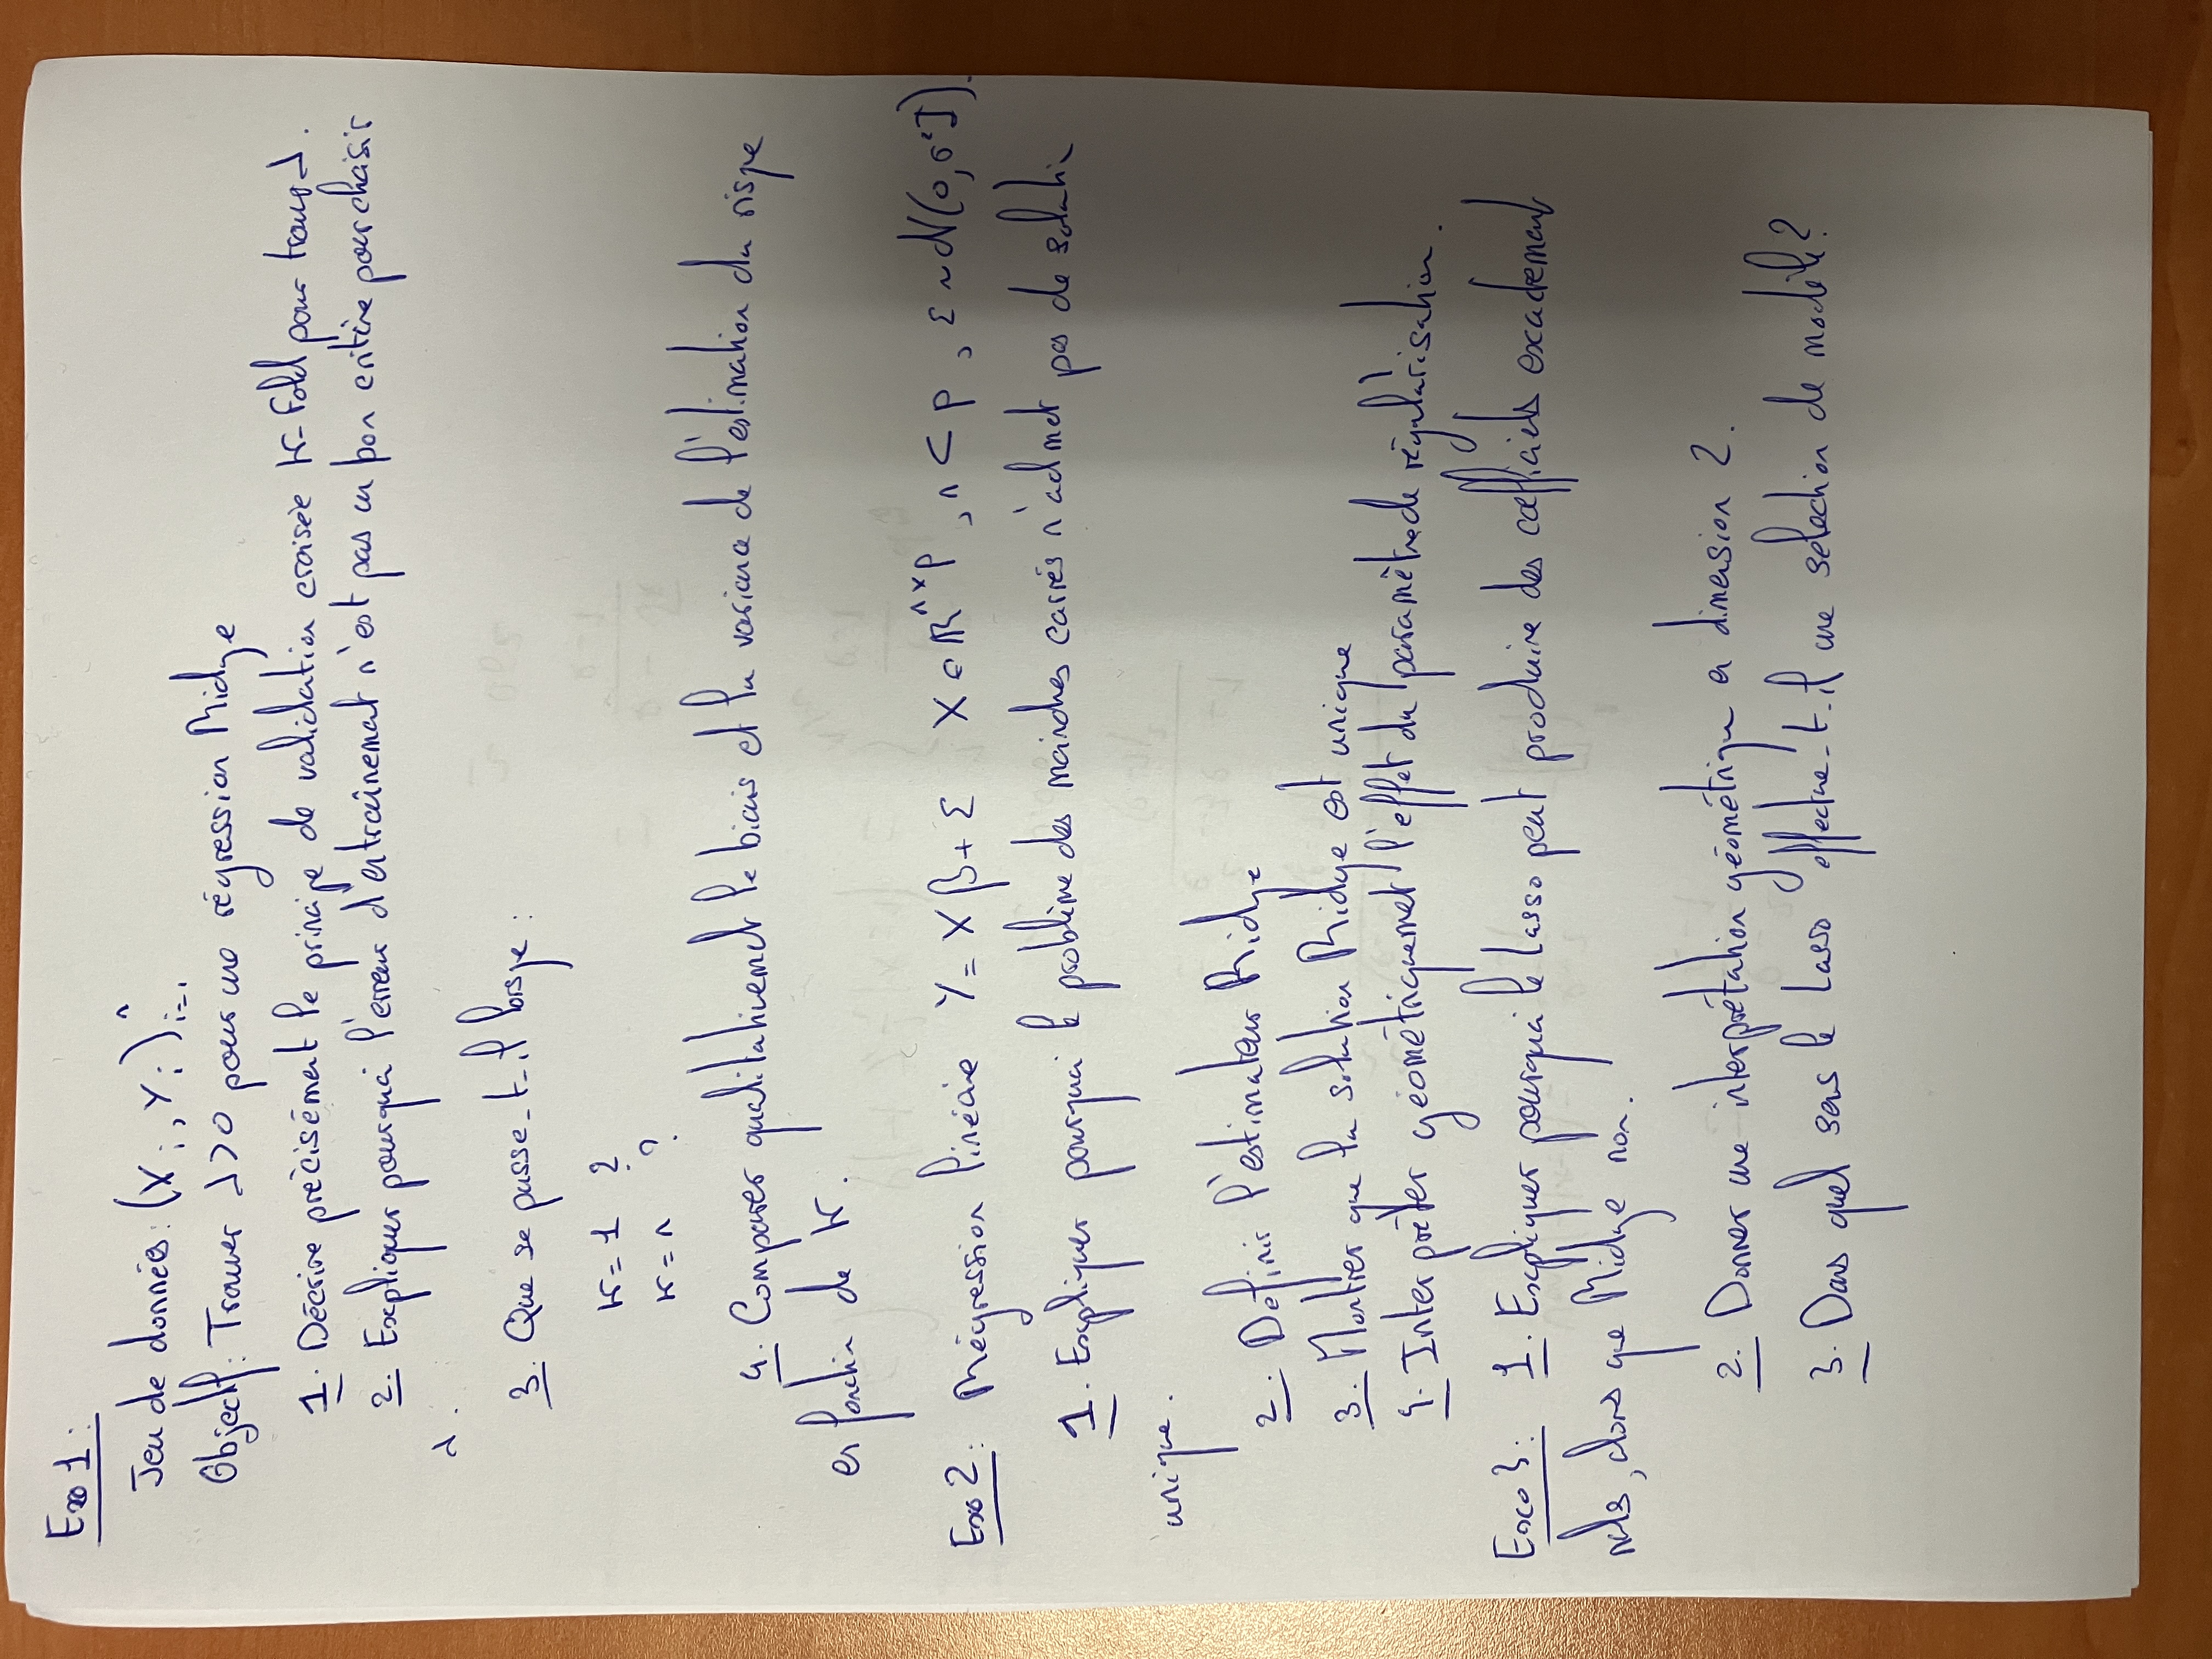 Exo 1:
Jeu de donnés: (Xi, Yi)ⁿi=1
Objectif: Trouver λ>0 pour une régression Ridge
1. Décrire précisément le principe de validation croisée K-Fold pour trouver λ.
2. Expliquer pourquoi l'erreur d'entraînement n'est pas un bon critère pour choisir
λ.
3. Que se passe-t-il lorsque:
K = 1 ?
K = n ?
4. Comparer qualitativement le biais et la variance de l'estimation du risque
en fonction de K.
Exo 2: Régression linéaire Y = Xβ + Σ X ∈ ℝⁿˣᵖ, n < p, Σ ~ N(0, σ²I).
1. Expliquer pourquoi le problème des moindres carrés n'admet pas de solution
unique.
2. Definir l'estimateur Ridge
3. Montrer que la solution Ridge est unique
4. Interpréter géométriquement l'effet du paramètre de régularisation.
Exo 3: 1. Expliquer pourquoi le Lasso peut produire des coefficients exactement
nuls, alors que Ridge non.
2. Donner une interprétation géométrique en dimension 2.
3. Dans quel sens le Lasso effectue-t-il une selection de modèle?